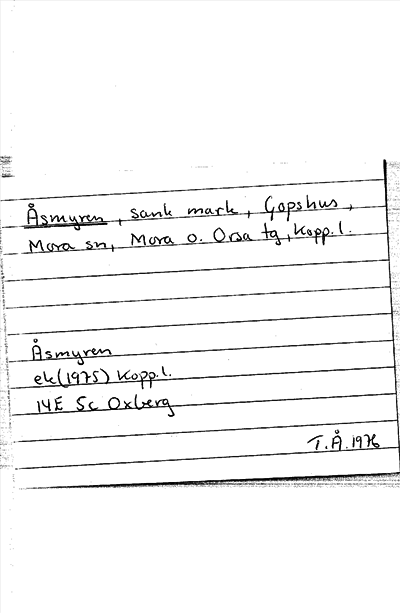 Åsmyren, sank mark, Gopshus,
Mora sn, Mora o. Orsa tg, Kopp.l.
Åsmyren
ek(1975) Kopp.l.
14E 5c Oxberg
T.Å.1976